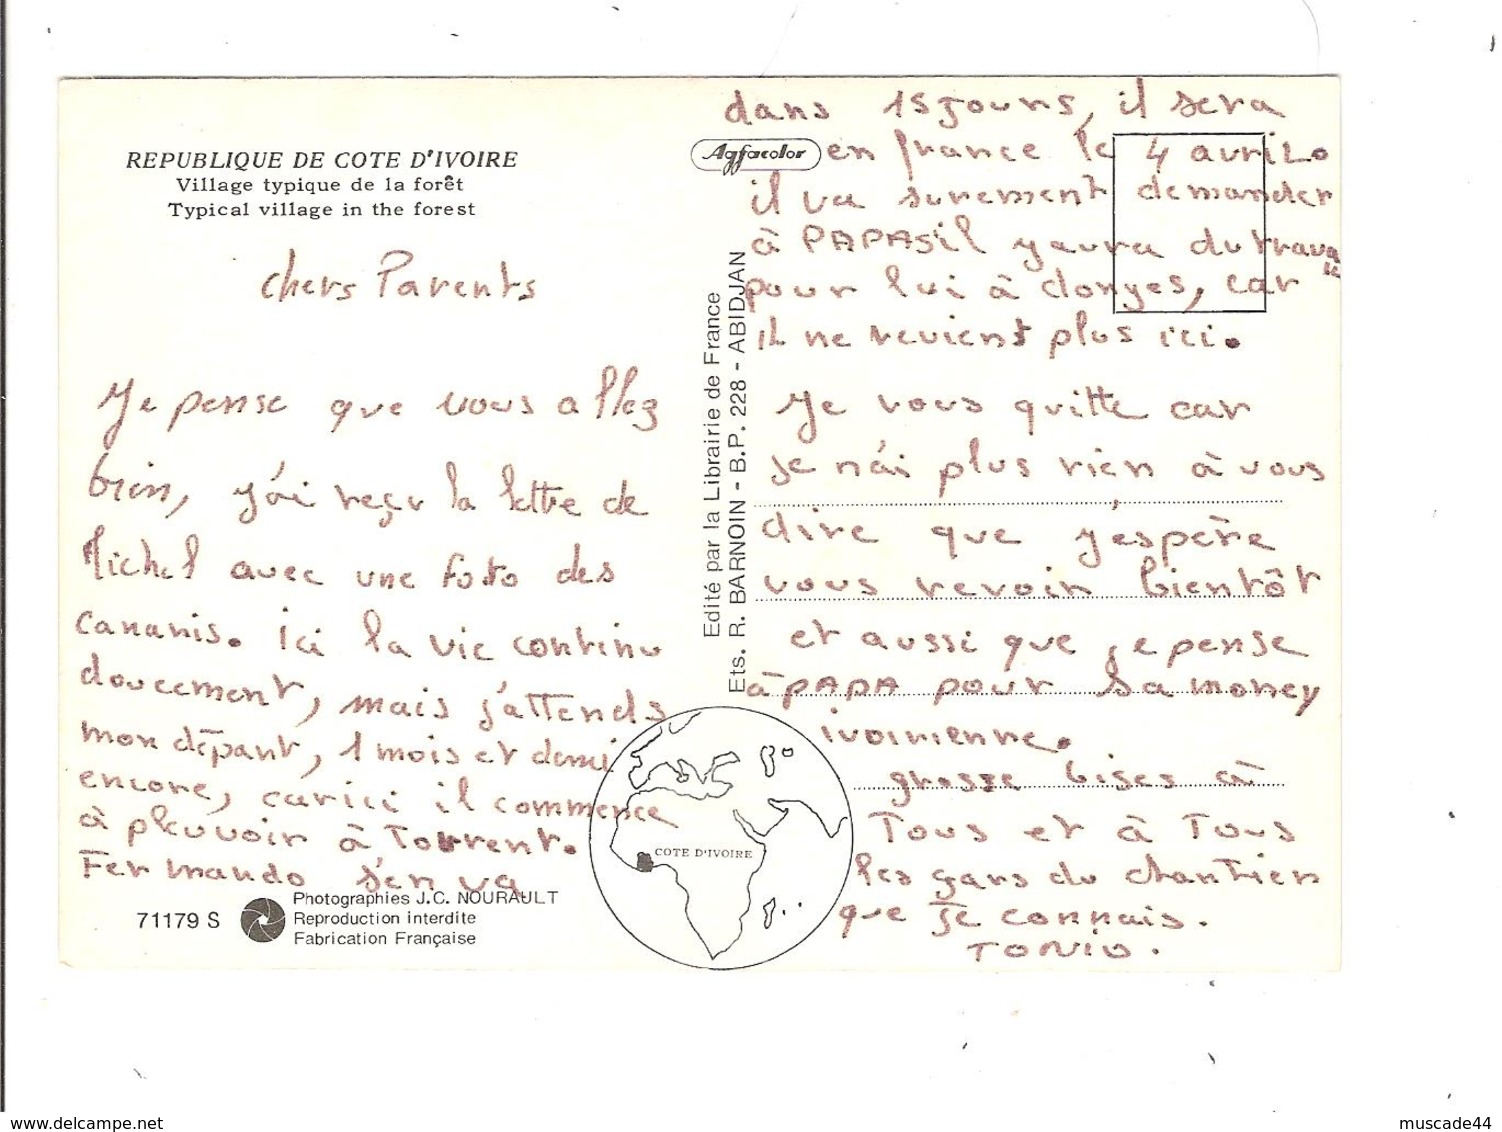 REPUBLIQUE DE COTE D'IVOIRE
Village typique de la forêt
Typical village in the forest
chers Parents
Je pense que vous allez
bien, j'ai reçu la lettre de
Michel avec une foto des
cananis. ici la vie continu
doucement, mais j'attends
mon dépant, 1 mois et demi
encore, car ici il commence
à pleuvoir à Torrent.
Fernando s'en va
71179 S
Photographies J.C. NOURAULT
Reproduction interdite
Fabrication Française
Edité par la Librairie de France
Ets. R. BARNOIN - B.P. 228 - ABIDJAN
COTE D'IVOIRE
Agfacolor
dans 15 Jours, il sera
en france le 4 avril.
il va surement demander
à PAPA sil y aura du travail
pour lui à donges, car
il ne revient plus ici.
Je vous quitte car
je n'ai plus rien à vous
dire que j'espère
vous revoir bientôt
et aussi que je pense
à PAPA pour sa money
ivoirienne.
grosse bises à
Tous et à Tous
les gars du chantier
que Je connais.
TONIO.
www.delcampe.net
muscade44